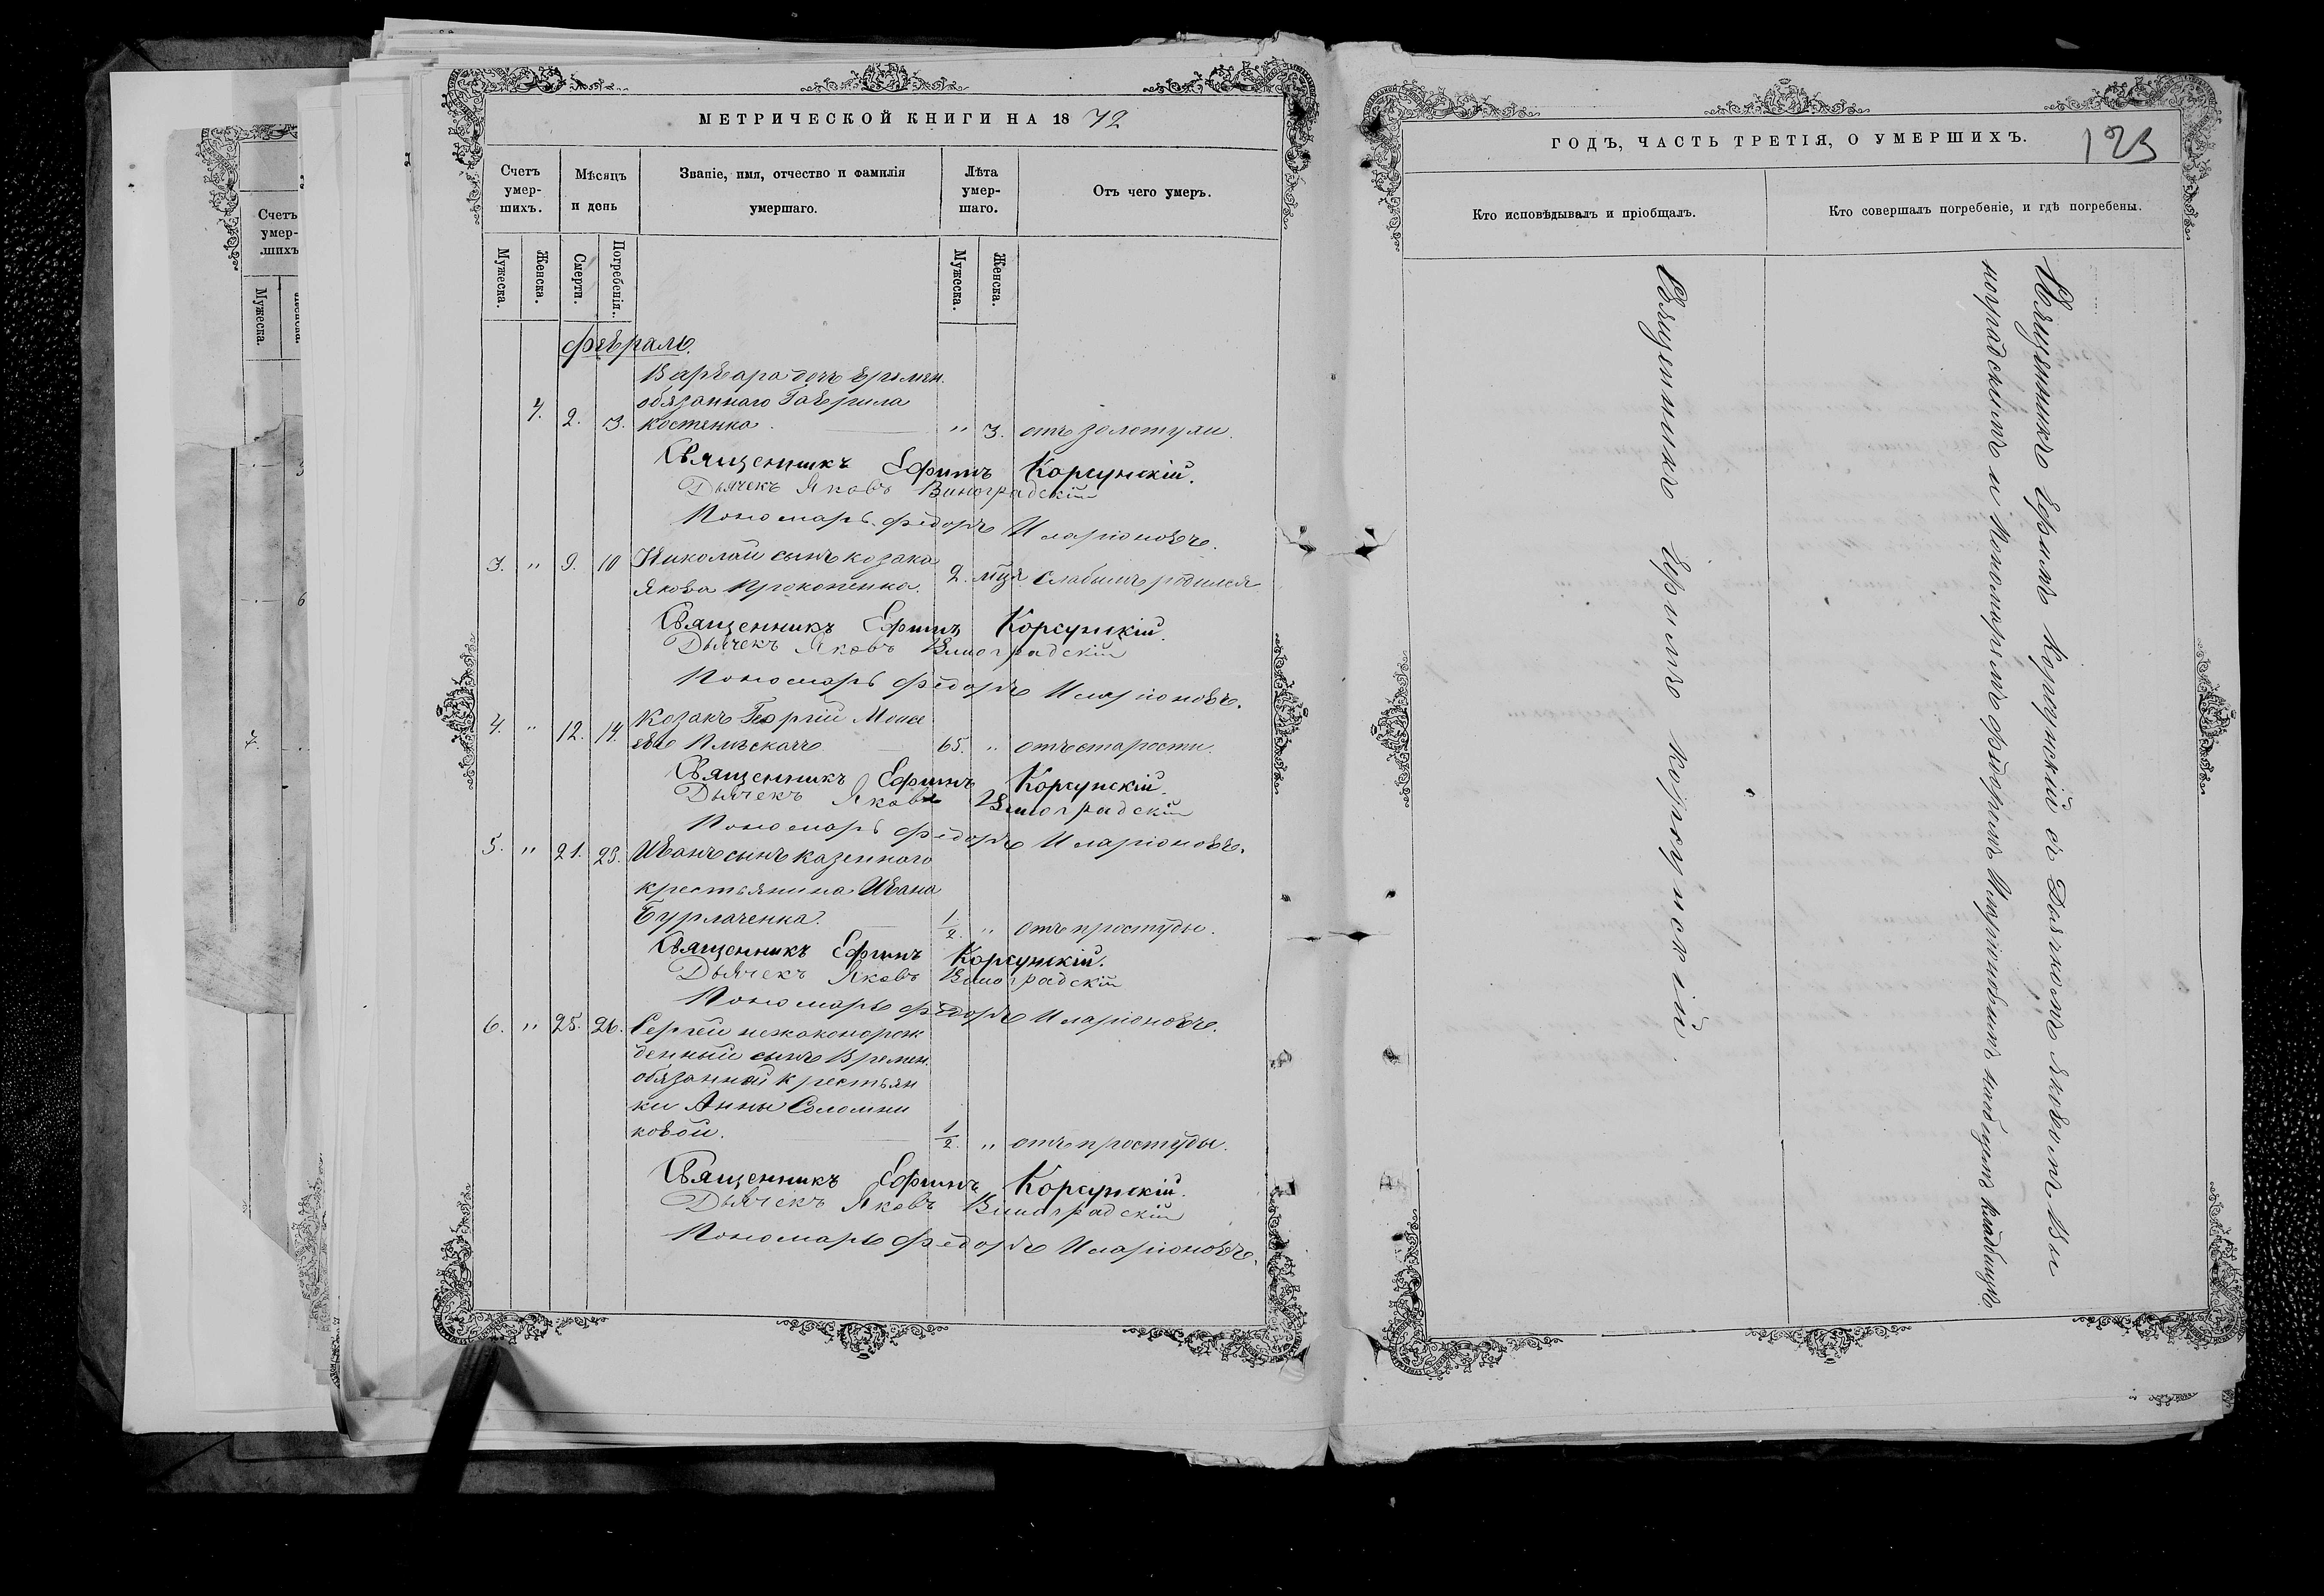 МЕТРИЧЕСКОЙ КНИГИ НА 1872
Счетъ умер-шихъ.
Мѣсяцъ и день
Званіе, имя, отчество и фамилія умершаго.
Лѣта умер-шаго.
Отъ чего умеръ.
Мужеска.
Женска.
Смерти.
Погребенія.
Мужеска.
Женска.
Февраль.
Варвара дочь времен.
обязаннаго Гаврила
4. 2. 3. Костенка. " 3. отъ золотухи.
Священникъ Ефимъ Корсунскій.
Дьячекъ Яковъ Виноградскій
Пономарь Федоръ Иларіоновъ.
3. " 9. 10 Николай сынъ козака
Якова Прокопенка. 2. мця слабымъ родился
Священникъ Ефимъ Корсунскій.
Дьячекъ Яковъ Виноградскій
Пономарь Федоръ Иларіоновъ.
4. " 12. 14. Козакъ Георгій Моисе
евъ 65. " отъ старости.
Священникъ Ефимъ Корсунскій.
Дьячекъ Яковъ Виноградскій
Пономарь Федоръ Иларіоновъ.
5. " 21. 23. Иванъ сынъ казеннаго
крестьянина Ивана
Бурлаченка. 1/2. " отъ простуды.
Священникъ Ефимъ Корсунскій.
Дьячекъ Яковъ Виноградскій
Пономарь Федоръ Иларіоновъ.
6. " 25. 26. Сергій незаконорож
денный сынъ времен.
обязанной крестьян
ки Анны Соломни
ковой. 1/2. " отъ простуды.
Священникъ Ефимъ Корсунскій.
Дьячекъ Яковъ Виноградскій
Пономарь Федоръ Иларіоновъ.
ГОДЪ, ЧАСТЬ ТРЕТІЯ, О УМЕРШИХЪ.
123
Кто исповѣдывалъ и пріобщалъ.
Кто совершалъ погребеніе, и гдѣ погребены.
Священникъ Ефимъ Корсунскій
Священникъ Ефимъ Корсунскій съ Дьячкомъ Яковомъ Ви
ноградскимъ и Пономаремъ Федоромъ Иларіоновымъ кладбищѣ
Счетъ умер-шихъ
Мужеска.